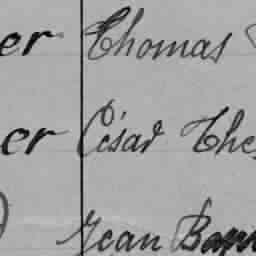 er Thomas
er César The
Jean